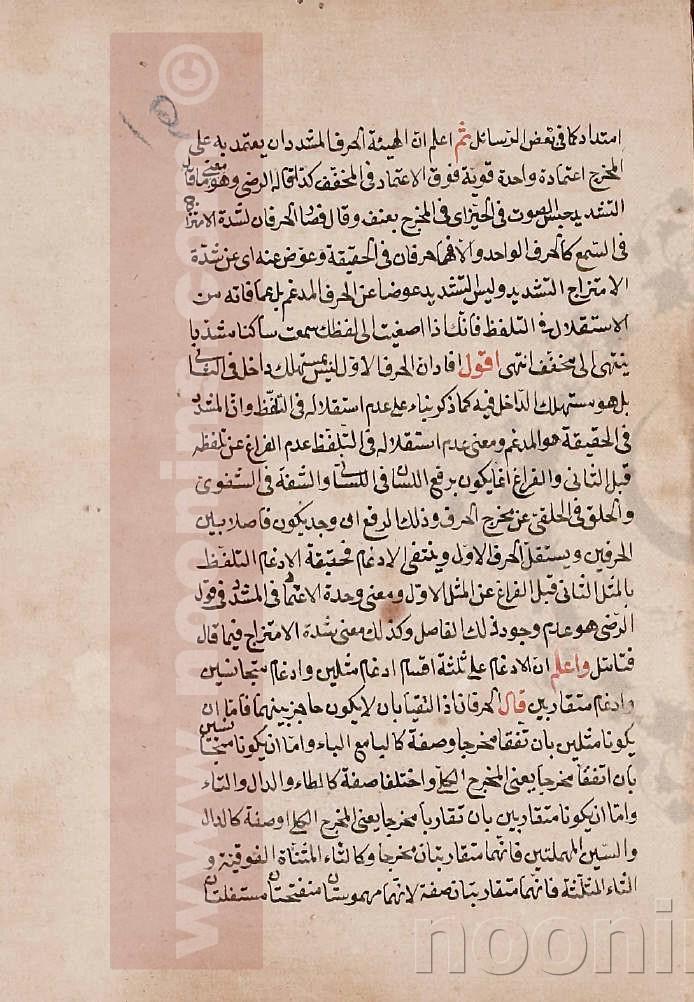 امتداد كما في بعض الرسائل ثم اعلم ان الهيئة الحرف المشدد ان يعتمد به على
المخرج اعتمادة واحدة قوية فوق الاعتماد في المخفف كذا قاله الرضي وهو معنى ما قاله
التشديد حبس الصوت في الحيز اي في المخرج بعنف وقال فصار الحرفان لشدة الامتزاج
في السمع كالحرف الواحد والا فهما حرفان في الحقيقة وعوض عنه اي عن شدة
الامتزاج التشديد وليس التشديد عوضا عن الحرف المدغم بل عما فاته من
الاستقلال في التلفظ فانك اذا اصغيت الى لفظك سمعت ساكنا مشددا
ينتهي الى مخفف انتهى اقول افاد ان الحرف الاول ليس بمستهلك داخل في الثاني
بل هو مستهلك الداخل فيه كما ذكر بناء على عدم استقلاله في التلفظ وان المشدد
في الحقيقة هو المدغم ومعنى عدم استقلاله في التلفظ عدم الفراغ عن تلفظه
قبل الثاني والفراغ انما يكون برفع اللسان في اللساني والشفة في الشفوي
والحلق في الحلقي عن مخرج الحرف وذلك الرفع ان وجد يكون فاصلا بين
الحرفين ويستقل الحرف الاول وينتفي الادغام فحقيقة الادغام التلفظ
بالمثل الثاني قبل الفراغ عن المثل الاول ومعنى وحدة الاعتماد في المشدد في قول
الرضي هو عدم وجود ذلك الفاصل وكذلك معنى شدة الامتزاج فيما قال
فتامل واعلم ان الادغام على ثلثة اقسام ادغام مثلين وادغام متجانسين
وادغام متقاربين قال الحرفان اذا التقيا بان لا يكون حاجز بينهما فاما ان
يكونا مثلين بان تفقا مخرجا وصفة كالبا مع الباء واما ان يكونا متجانسين
بان اتفقا مخرجا يعنى المخرج الكلي واختلفا صفة كالطاء والدال والتاء
واما ان يكونا متقاربين بان تقاربا مخرجا يعنى المخرج الكلي او صفة كالدال
والسين المهملتين فانهما متقاربتان مخرجا وكالتاء المثناة الفوقية و
الثاء المثلثة فانهما متقاربتان صفة لانهما مهموستان منفتحتان مستفلتان
www.noonims.com ©
noonim